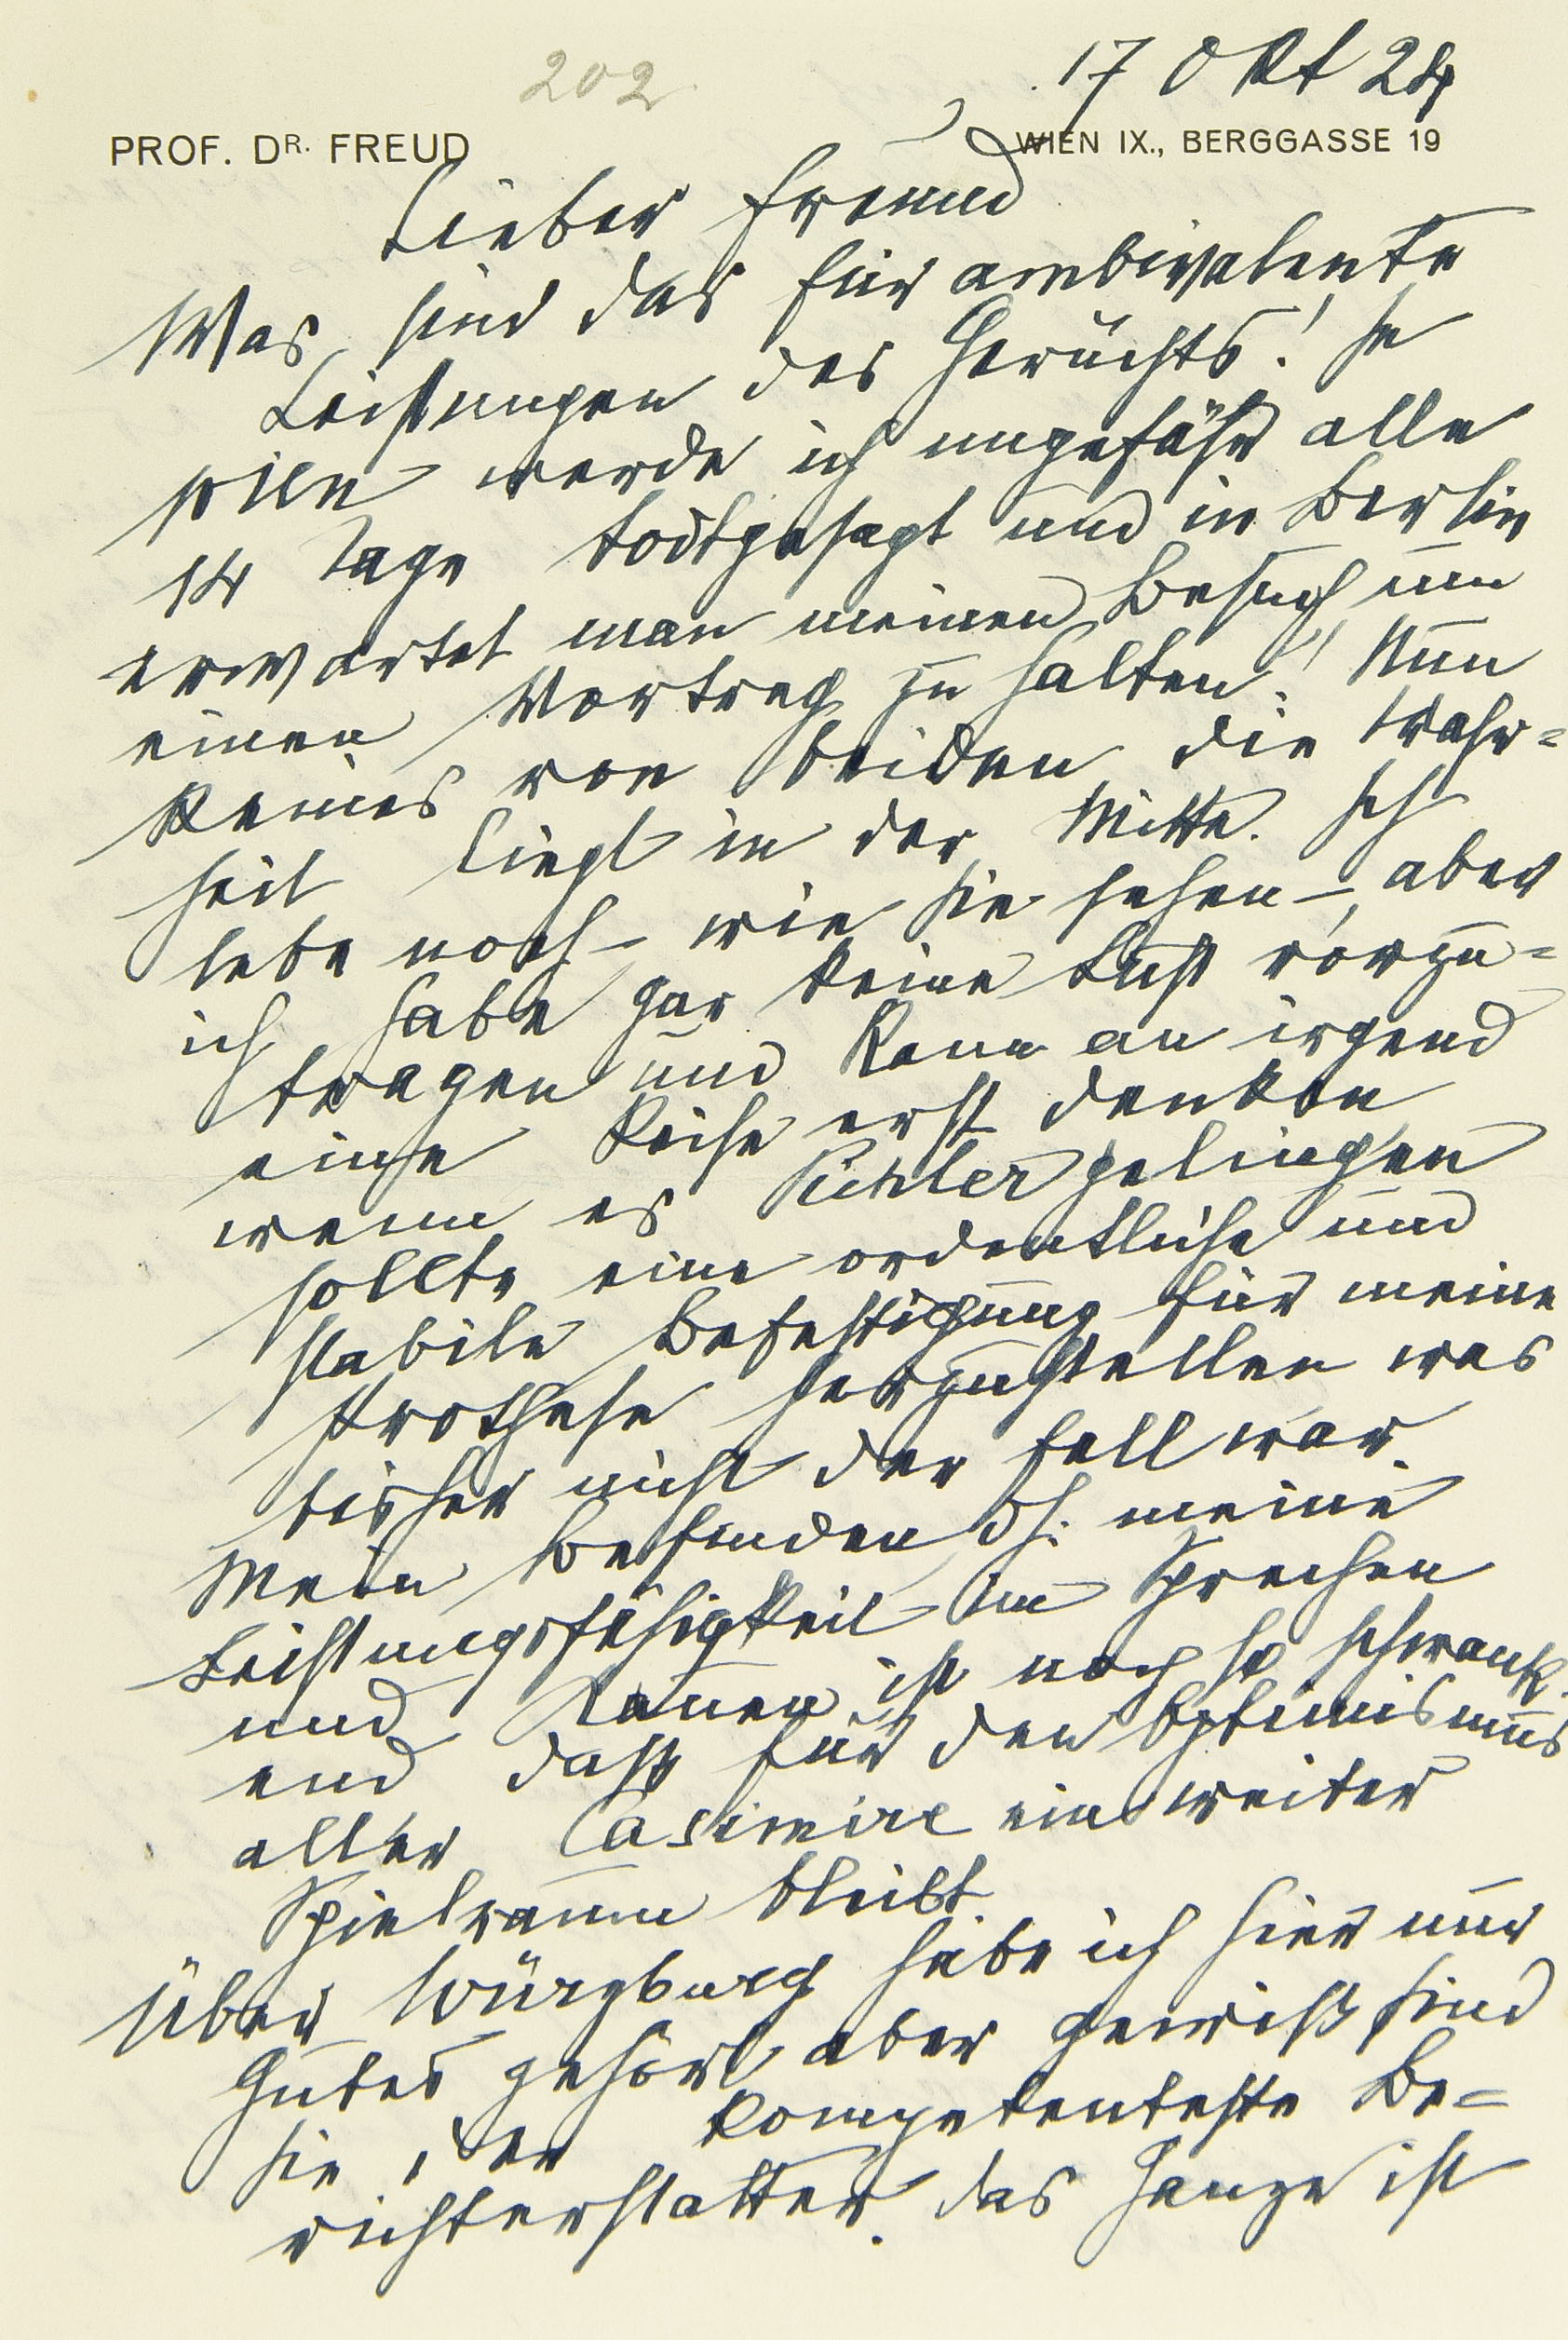 202
17 Okt 24
PROF. DR. FREUD
WIEN IX., BERGGASSE 19
Lieber Freund
Was sind das für ambivalente
Leistungen des Gerüchts! In
Wien werde ich ungefähr alle
14 Tage todtgesagt und in Berlin
erwartet man meinen Besuch um
einen Vortrag zu halten! Nun
keines von beiden die Wahr=
heit liegt in der Mitte. Ich
lebe noch – wie Sie sehen –, aber
ich habe gar keine Lust vorzu=
tragen und kann an irgend
eine Reise erst denken
wenn es Pichler gelingen
sollte eine ordentliche und
stabile Befestigung für meine
Prothese herzustellen was
bisher nicht der Fall war.
Mein Befinden dh. meine
Leistungsfähigkeit im Sprechen
und Kauen ist noch so schwank=
end daß für den Optimismus
aller Casimire ein weiter
Spielraum bleibt.
Über Würzburg habe ich hier nur
Gutes gehört aber gewiß sind
Sie der kompetenteste Be=
richterstatter. Das Ganze ist